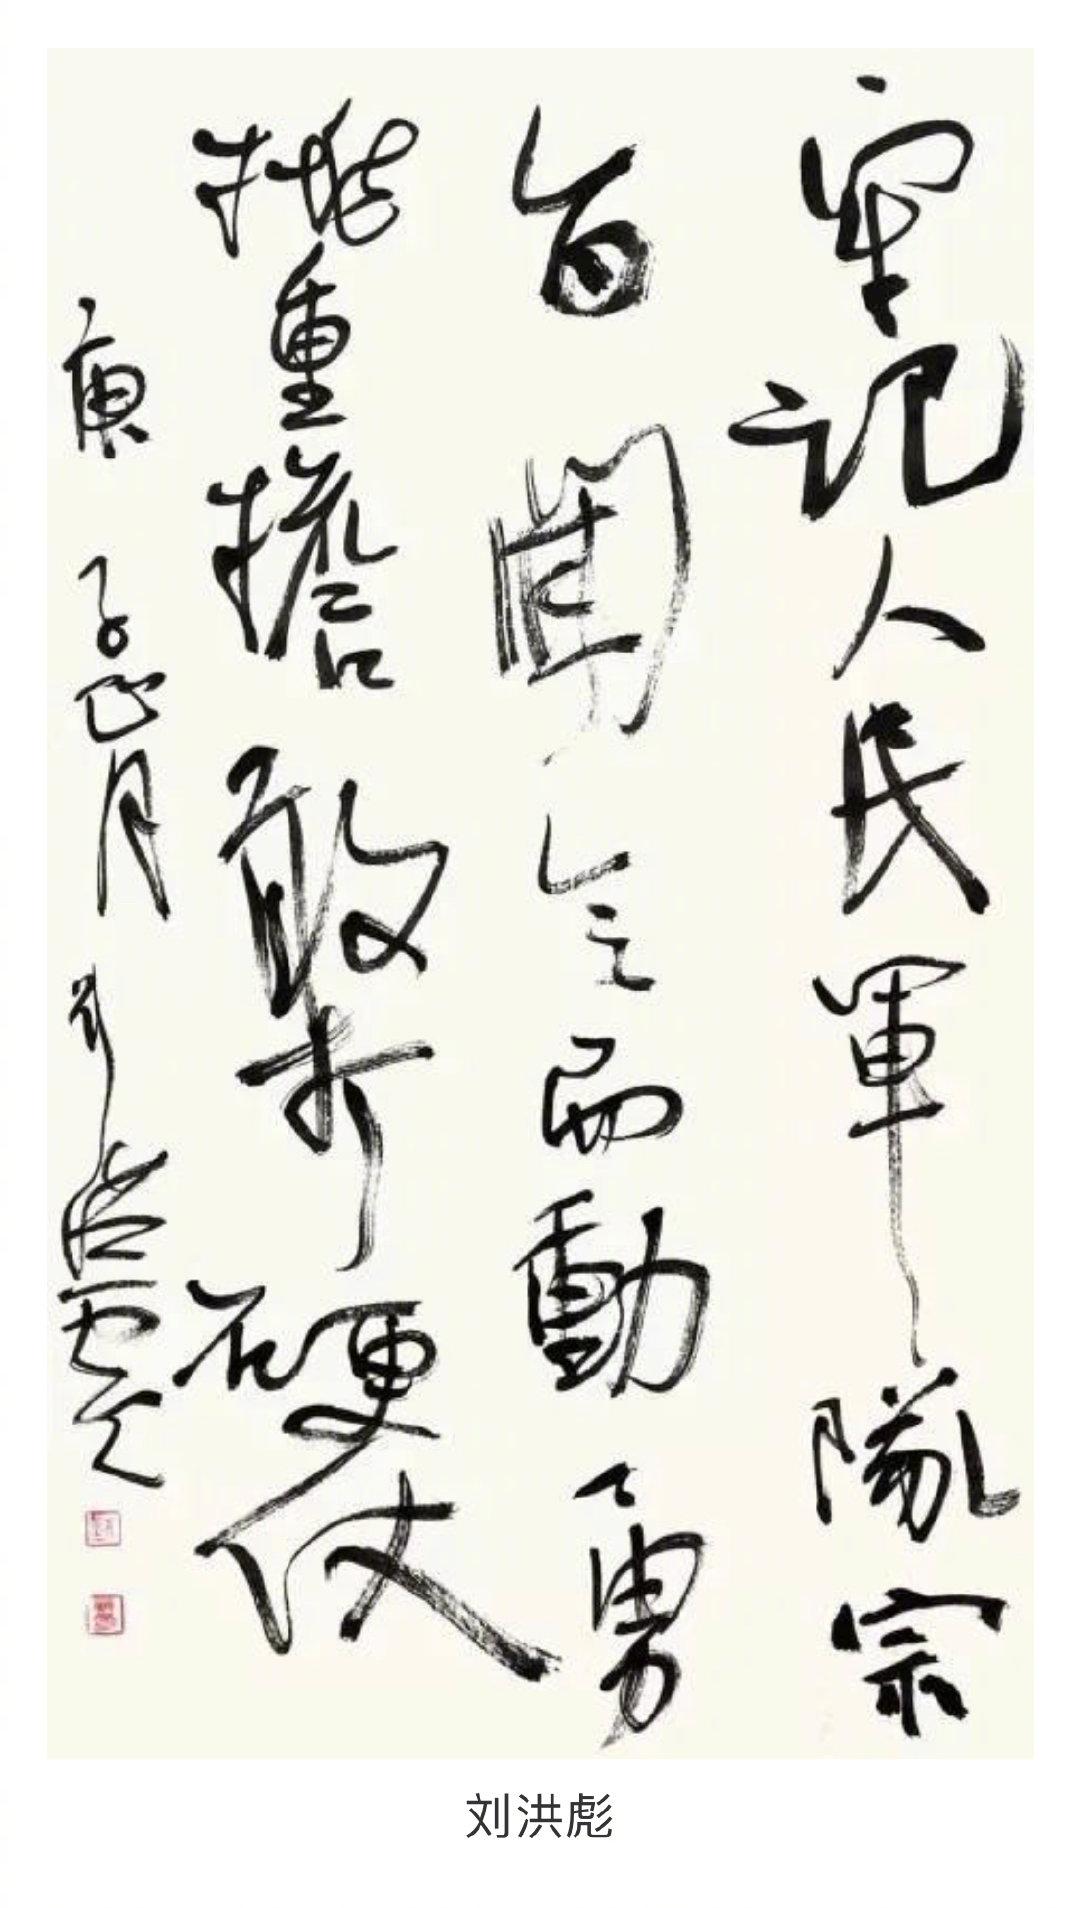 牢记人民軍隊宗
旨闻令而動勇
挑重擔敢打硬仗
庚子正月刘洪彪
刘洪彪